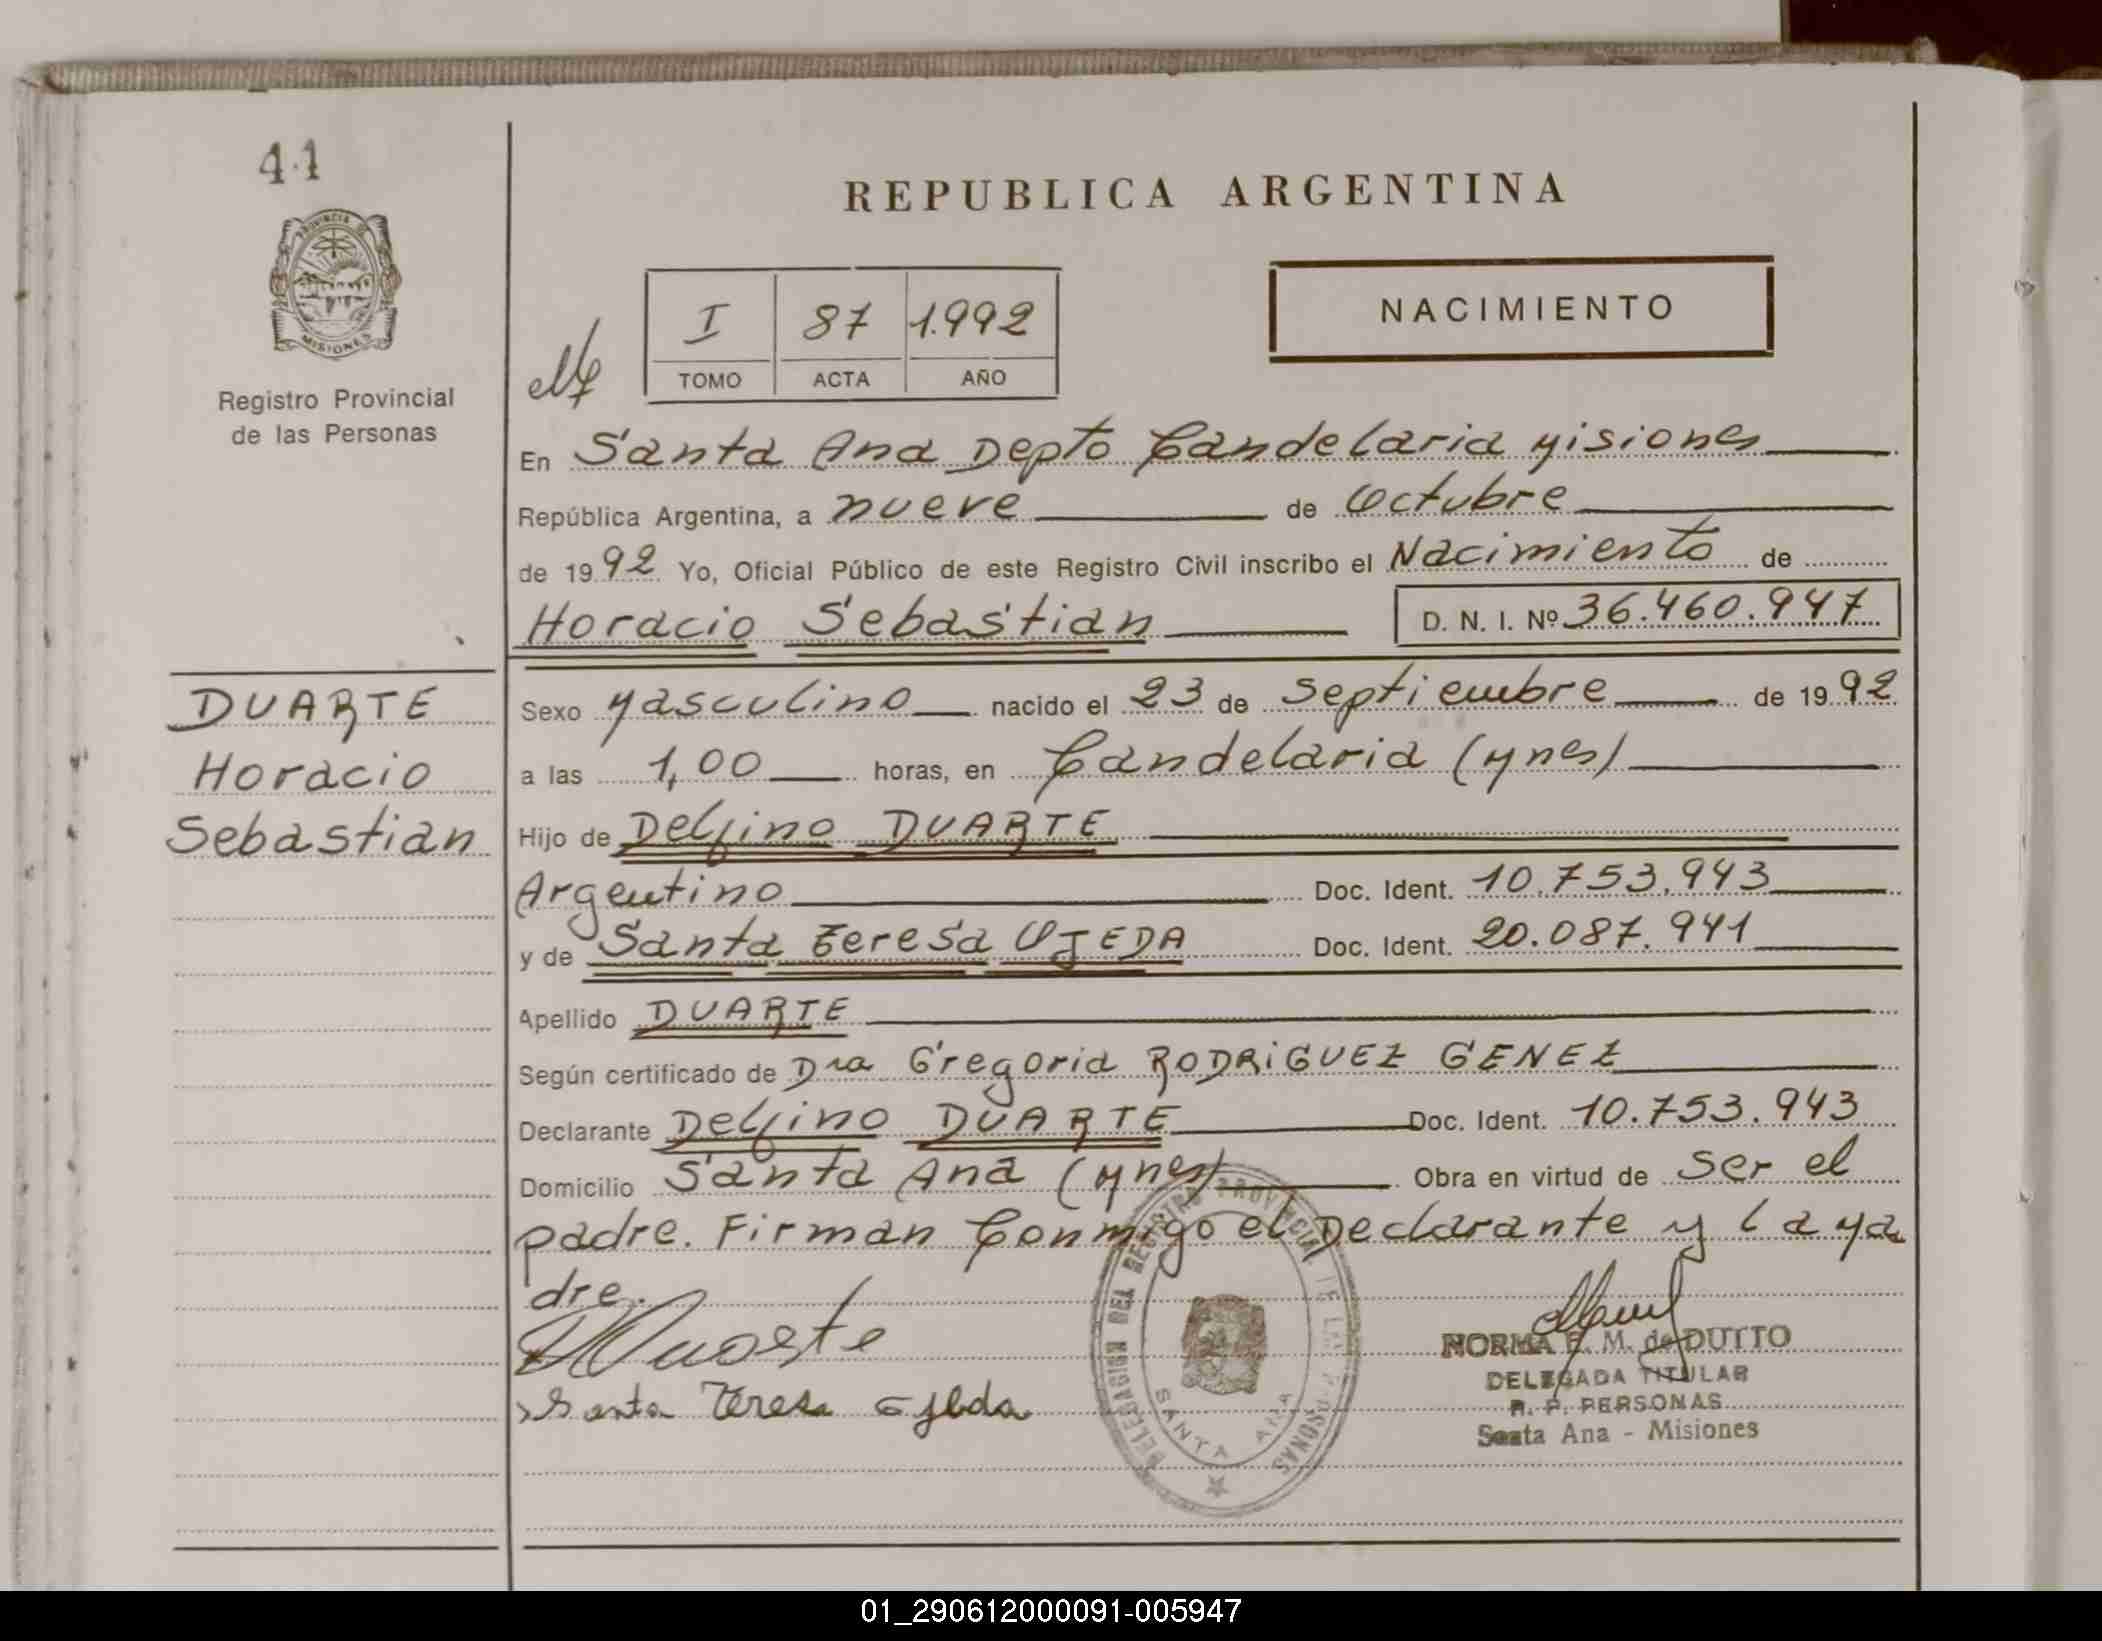 41
PROVINCIA DE
MISIONES
Registro Provincial
de las Personas
DUARTE
Horacio
Sebastian
REPUBLICA ARGENTINA
I 87 1.992
TOMO ACTA AÑO
NACIMIENTO
En Santa Ana Depto Candelaria Misiones
República Argentina, a nueve de Octubre
de 1992 Yo, Oficial Público de este Registro Civil inscribo el Nacimiento de
Horacio Sebastian D. N. I. Nº 36.460.947
Sexo Masculino nacido el 23 de Septiembre de 1992
a las 1,00 horas, en Candelaria (Mnes)
Hijo de Delfino DUARTE
Argentino Doc. Ident. 10.753.943
y de Santa Teresa OJEDA Doc. Ident. 20.087.941
Apellido DUARTE
Según certificado de Dra Gregoria RODRiGUEZ GENEZ
Declarante Delfino DUARTE Doc. Ident. 10.753.943
Domicilio Santa Ana (Mnes) Obra en virtud de ser el
padre. Firman Conmigo el Declarante y la Ma
dre.
Duarte
Santa Teresa Ojeda
DELEGACION DEL REGISTRO PROVINCIAL DE LAS PERSONAS
SANTA ANA
NORMA E. M. de DUTTO
DELEGADA TITULAR
R. P. PERSONAS
Santa Ana - Misiones
01_290612000091-005947